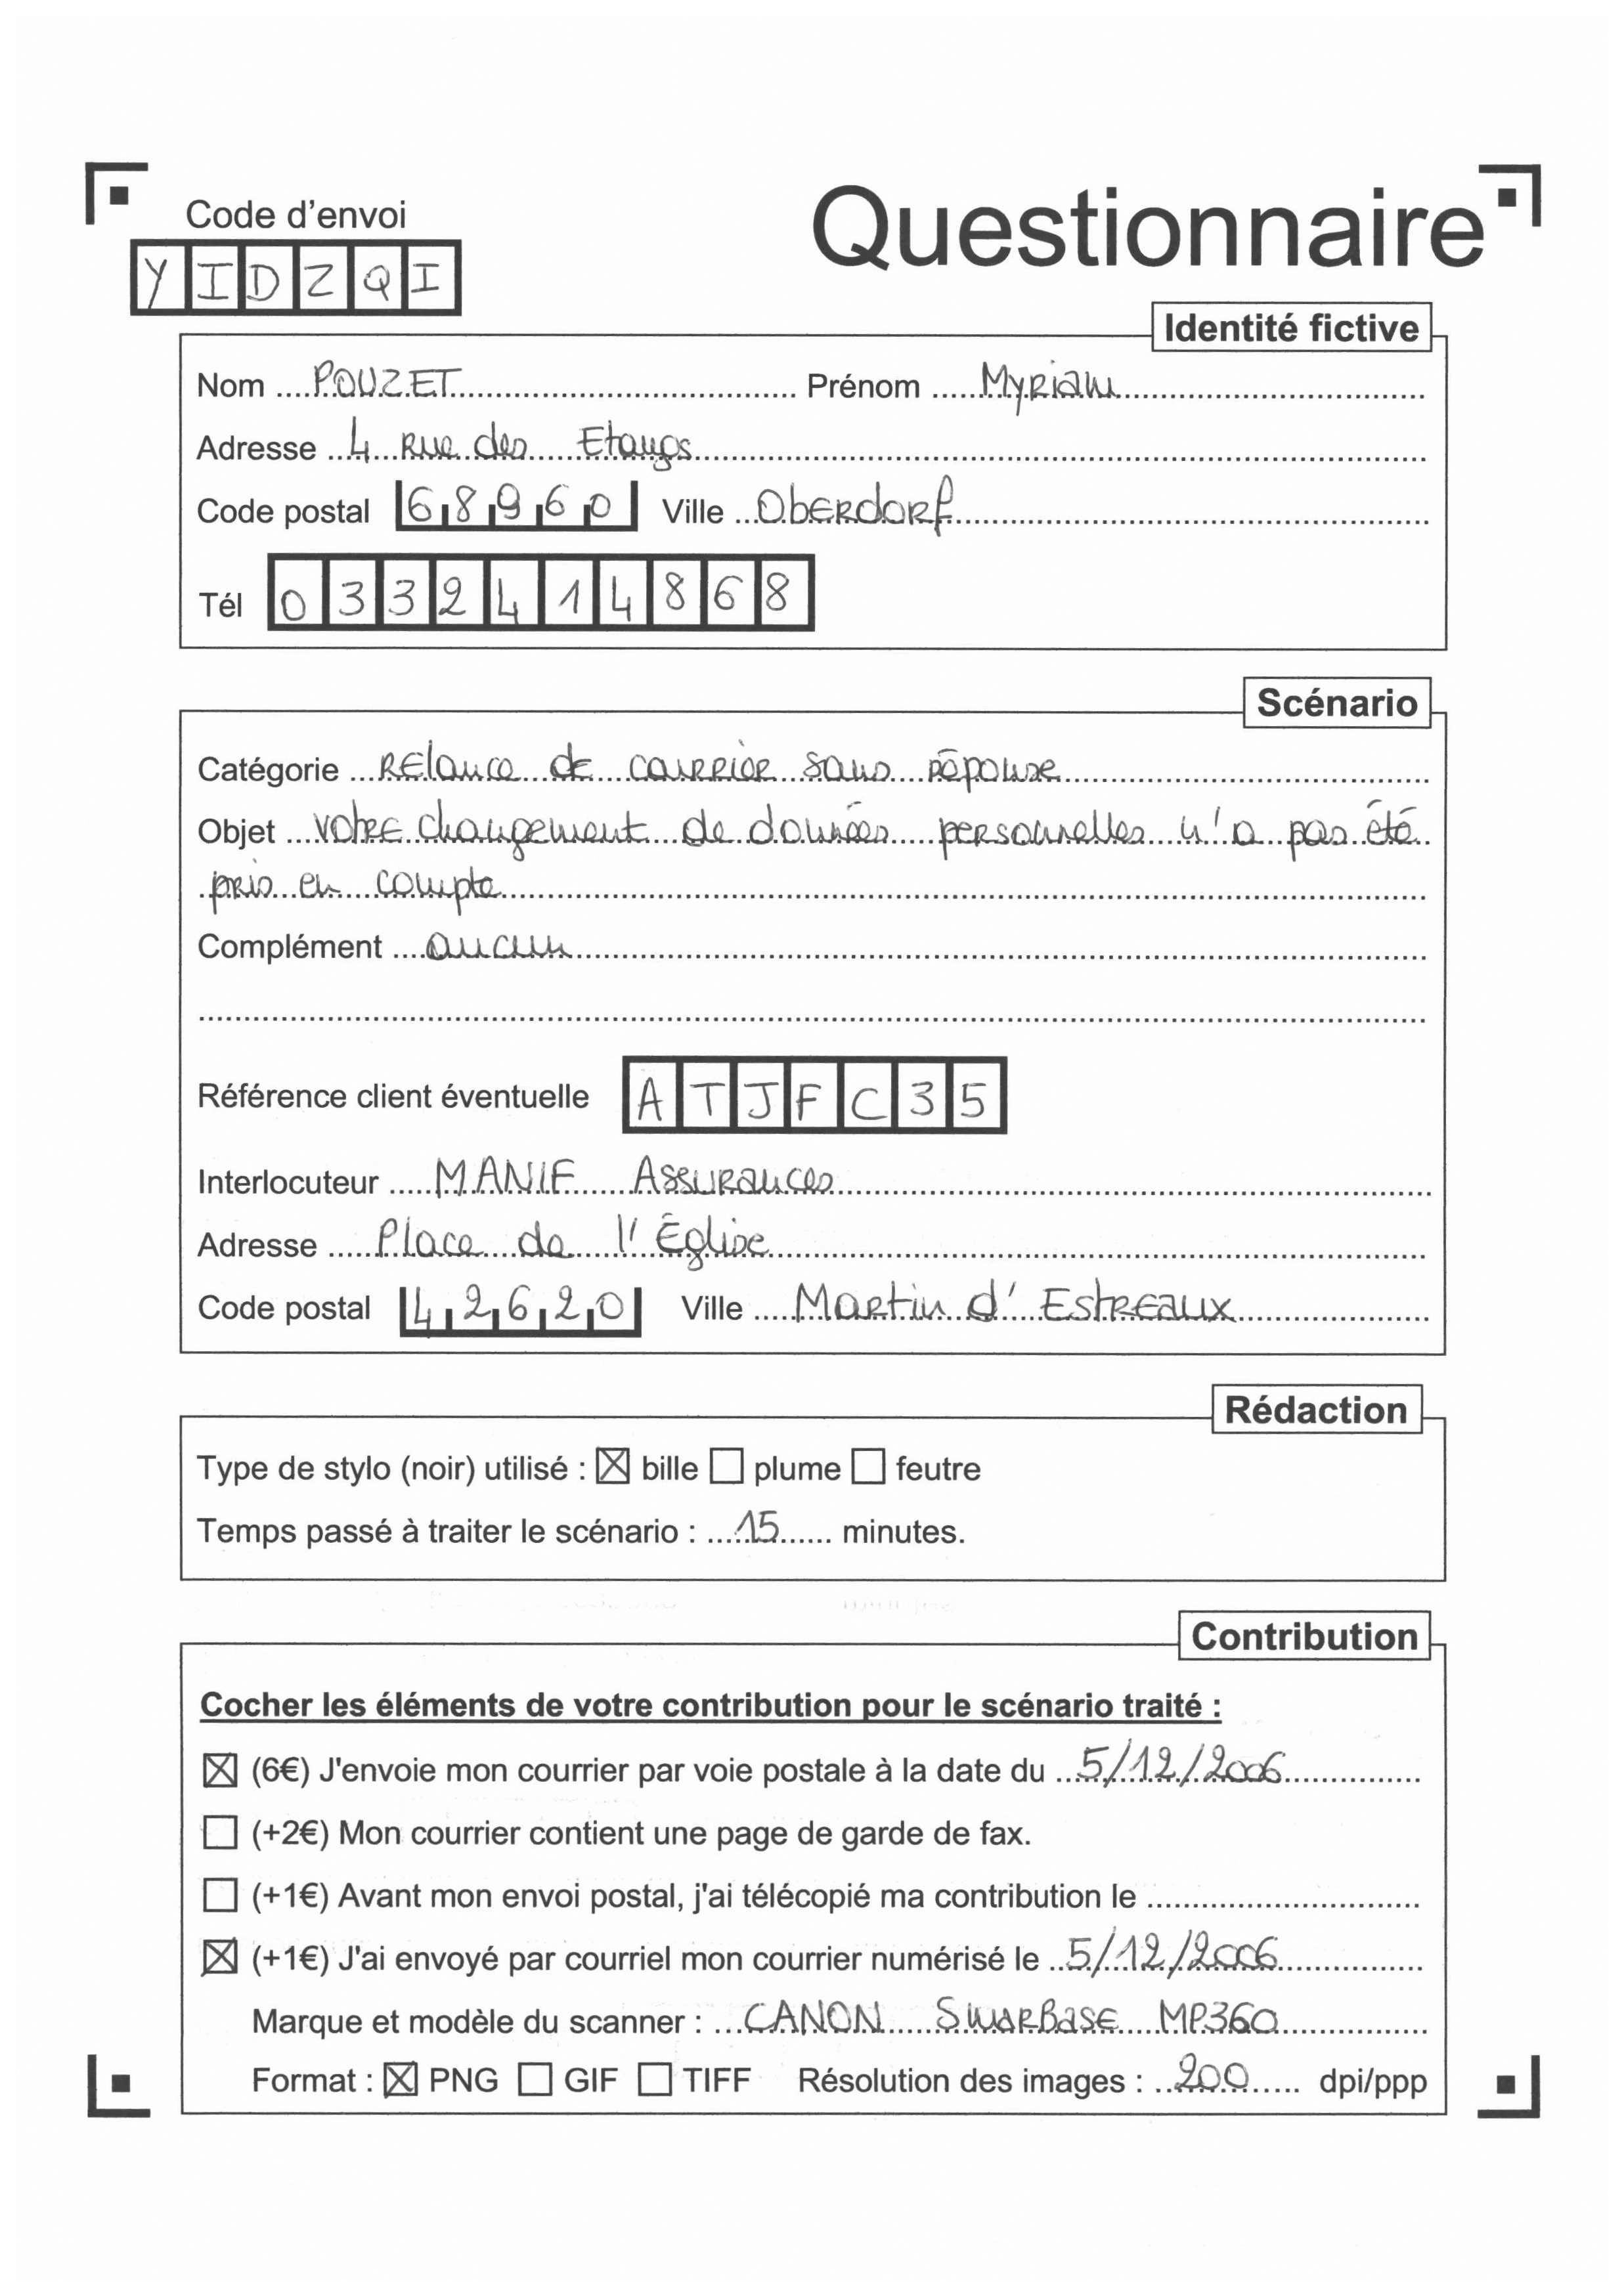 Code d'envoi
Questionnaire
YIDZQI
Identité fictive
Nom POUZET Prénom Myriam
Adresse 4 Rue des Etangs
Code postal 68960 Ville Oberdorf
Tél 0332414868
Scénario
Catégorie Relance de courrier sans réponse
Objet votre changement de données personnelles n'a pas été
pris en compte
Complément aucun
Référence client éventuelle ATJFC35
Interlocuteur MANIF Assurances
Adresse Place de l'Église
Code postal 42620 Ville Martin d'Estreaux
Rédaction
Type de stylo (noir) utilisé : ☒ bille ☐ plume ☐ feutre
Temps passé à traiter le scénario : 15 minutes.
Contribution
Cocher les éléments de votre contribution pour le scénario traité :
☒ (6€) J'envoie mon courrier par voie postale à la date du 5/12/2006
☐ (+2€) Mon courrier contient une page de garde de fax.
☐ (+1€) Avant mon envoi postal, j'ai télécopié ma contribution le
☒ (+1€) J'ai envoyé par courriel mon courrier numérisé le 5/12/2006
Marque et modèle du scanner : CANON SmarBase MP360
Format : ☒ PNG ☐ GIF ☐ TIFF Résolution des images : 200 dpi/ppp